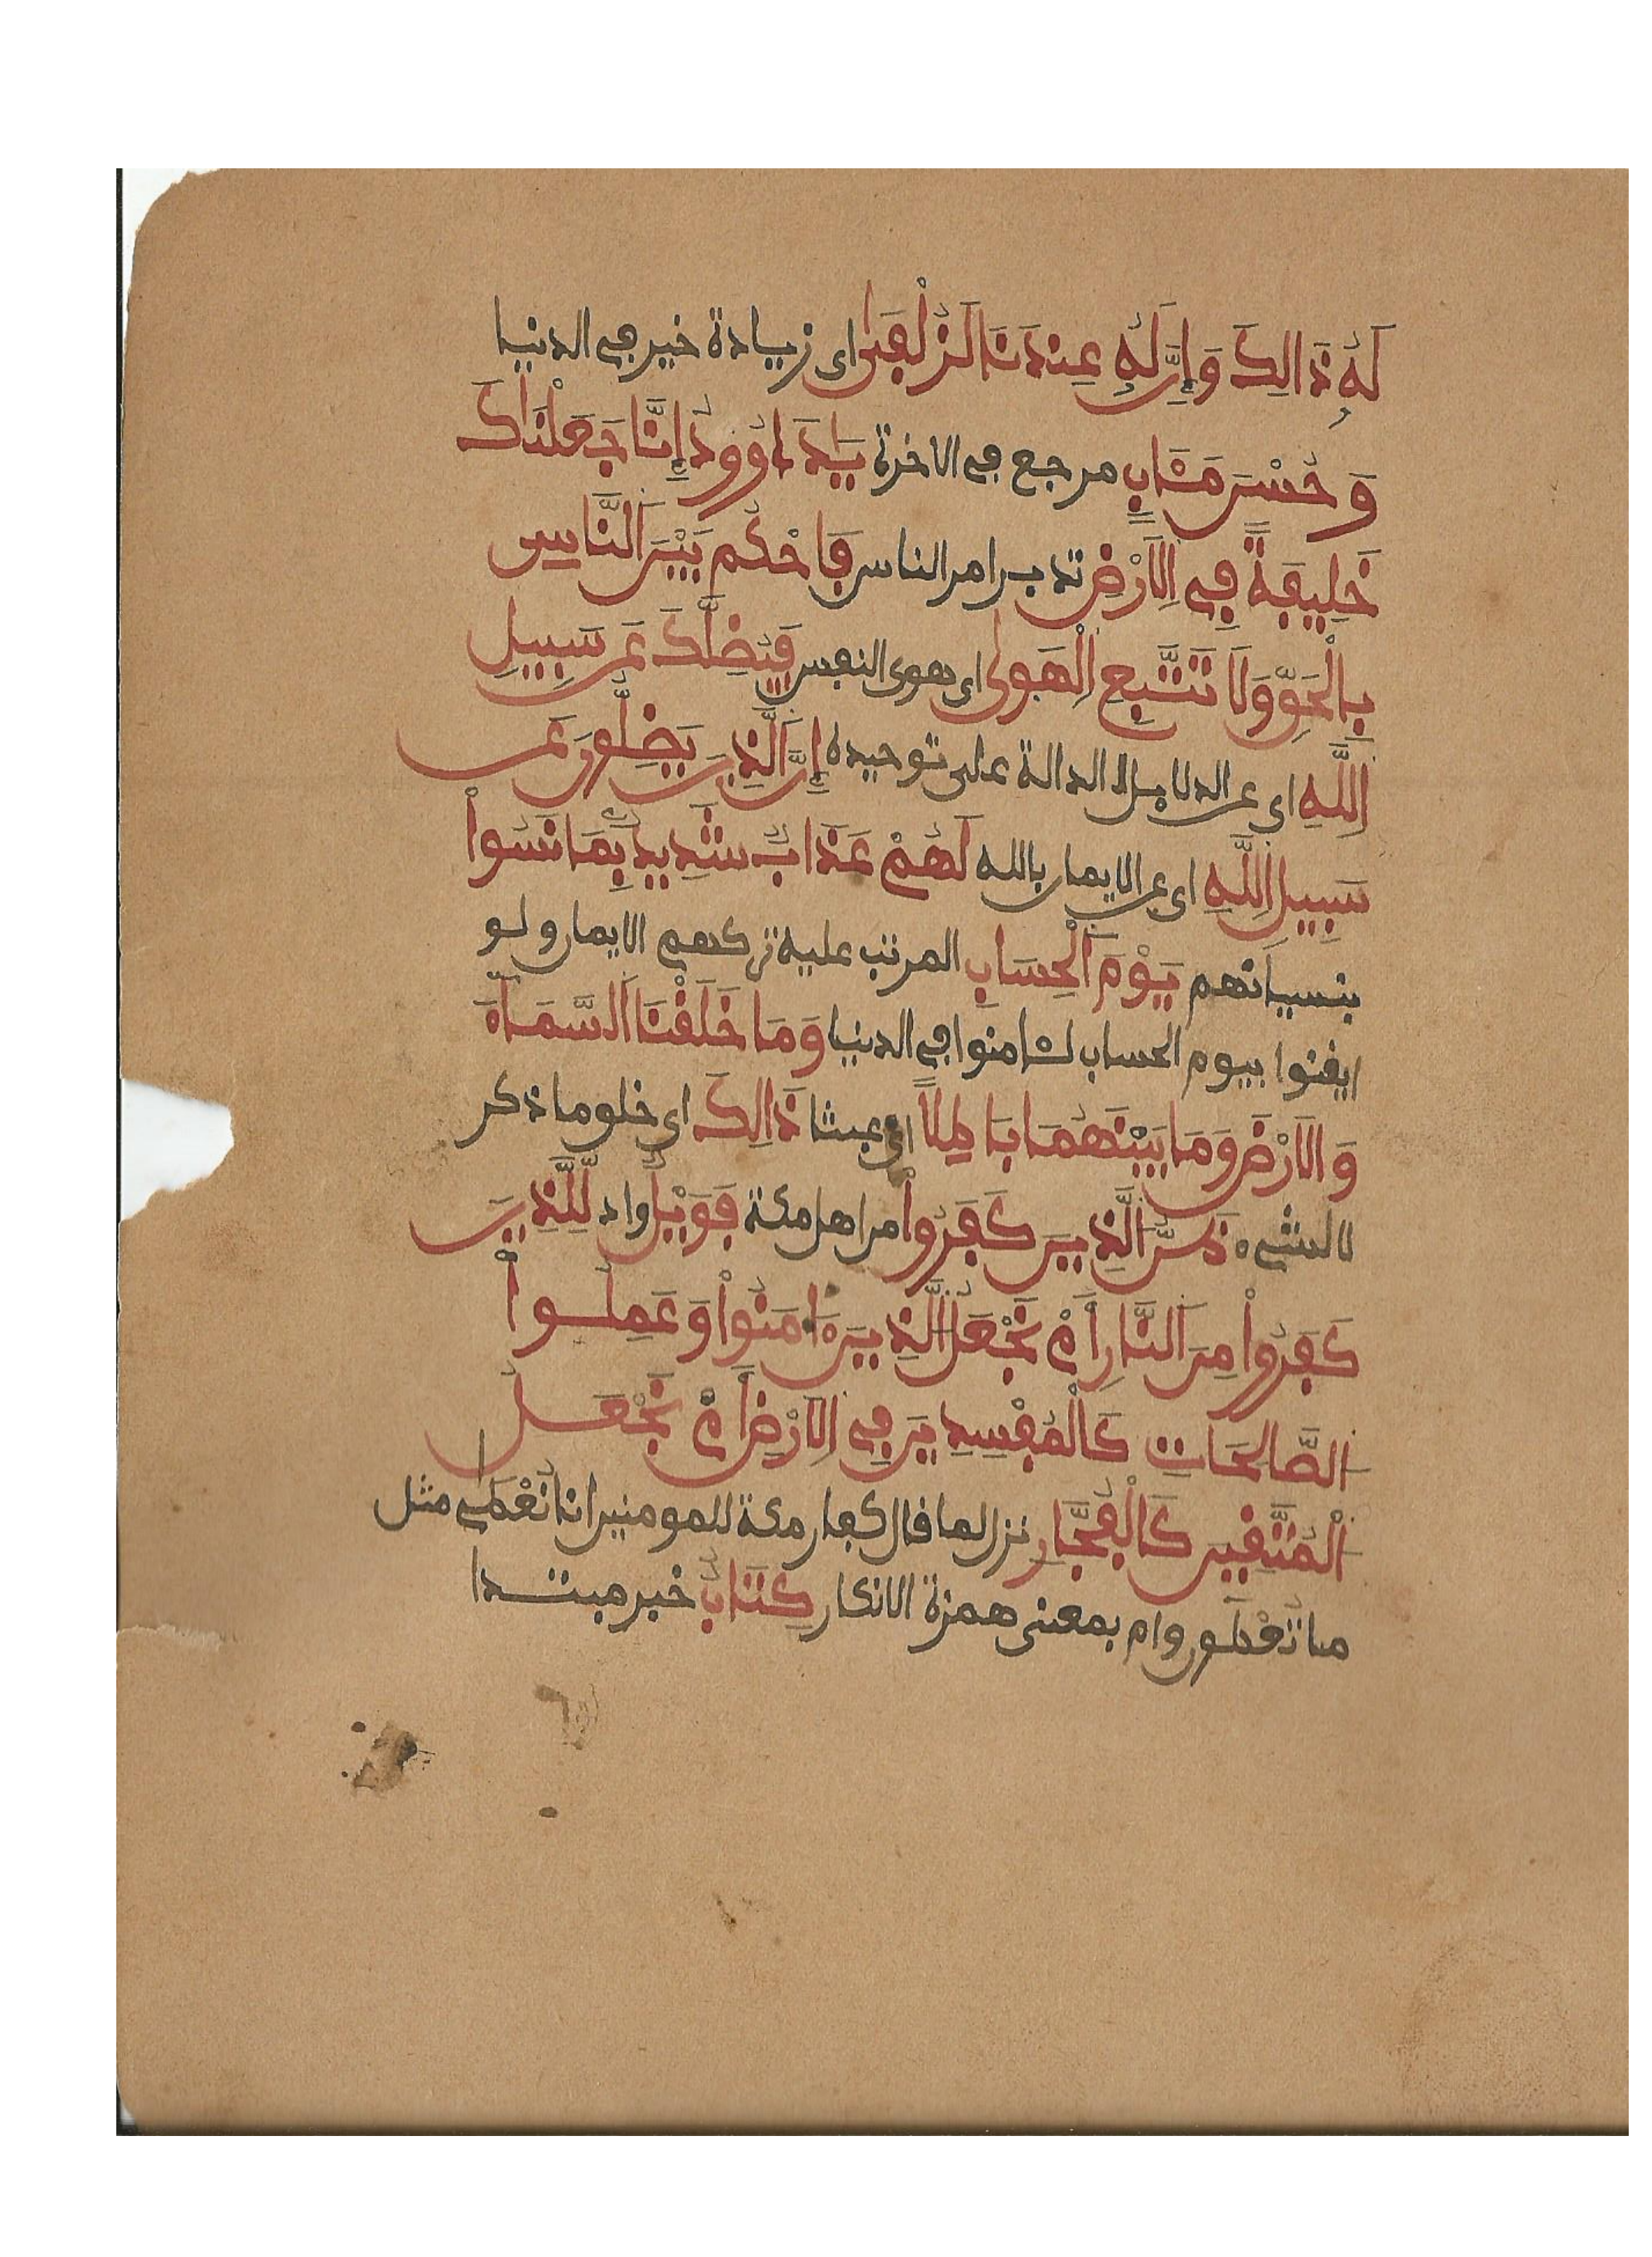 لَهُۥ ذَالِكَ وَإِنَّ لَهُۥ عِندَنَا لَزُلْفَىٰ اى زيادة خير في الدنيا
وَحُسْنَ مَـَٔابٍ مرجع في الاخرة يَادَاوُودُ إِنَّا جَعَلْنَاكَ
خَلِيفَةً فِي اِلَارْضِ تدبر امر الناس فَاحْكُم بَيْنَ اَلنَّاسِ
بِالْحَقِّ وَلَا تَتَّبِعِ اِلْهَوىٰ اى هوى النفس فَيُضِلَّكَ عَن سَبِيلِ
اِللَّهِ اى عن الدلايل الدالة على توحيده إِنَّ اَلَّذِينَ يَضِلُّونَ عَن
سَبِيلِ اِللَّهِ اى عن الايمان بالله لَهُمْ عَذَابٌ شَدِيدٌ بِمَا نَسُواْ
بنسيانهم يَوْمَ اَلْحِسَابِ المرتب عليه تركهم الايمان ولو
ايقنوا بيوم الحساب لـٔامنوا في الدنيا وَمَا خَلَقْنَا اَلسَّمَآءَ
وَالَارْضَ وَمَا بَيْنَهُمَا بَاطِلًا اى عبثا ذَالِكَ اى خلق ما ذكر
لا لشيء ظَنُّ اَلَّذِينَ كَفَرُواْ من اهل مكة فَوَيْلٌ واد لِّلَّذِينَ
كَفَرُواْ مِنَ اَلنَّارِ أَمْ نَجْعَلُ اُلَّذِينَ ءَامَنُواْ وَعَمِلُواْ
اُلصَّالِحَاتِ كَالْمُفْسِدِينَ فِي اِلَارْضِ أَمْ نَجْعَلُ
اُلْمُتَّقِينَ كَالْفُجَّارِ نزل لما قال كفار مكة للمومنين انا نُعْطَى مثل
ما تُعْطَون وام بمعنى همزة الانكار كِتَابٌ خبر مبتدا